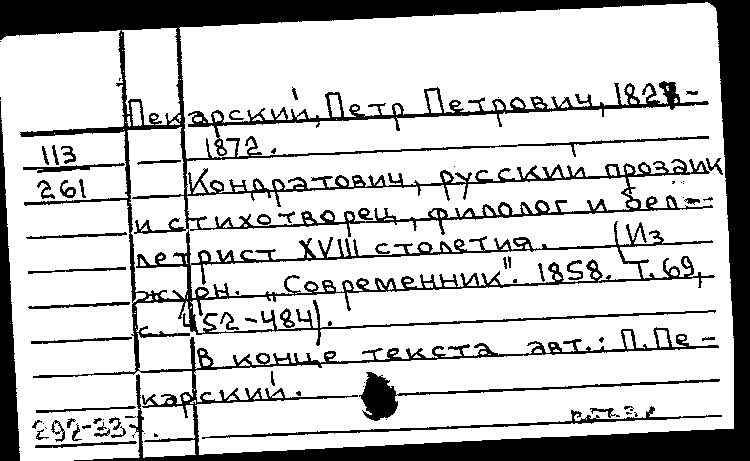 Пекарский, Петр Петрович, 1827-
113 1872.
261 Кондратович, русский прозаик
и стихотворец, филолог и бел-
летрист XVIII столетия. (Из
журн. „Современник". 1858. Т. 69,
с. 452-484).
В конце текста авт.: П. Пе-
карский.